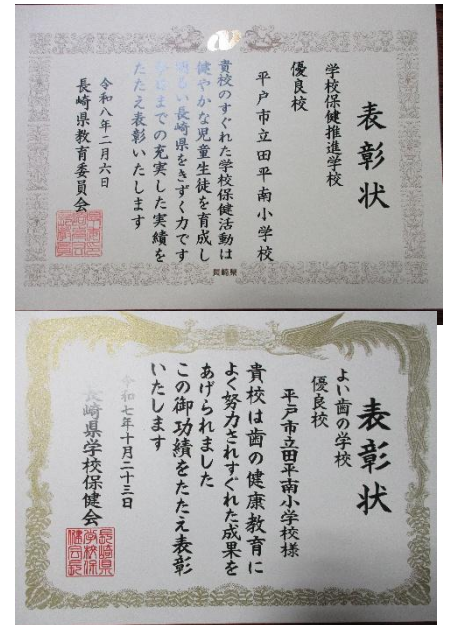 表彰状
学校保健推進学校
優良校
平戸市立田平南小学校
貴校のすぐれた学校保健活動は
健やかな児童生徒を育成し
明るい長崎県をきずく力です
今日までの充実した実績を
たたえ表彰いたします
令和八年二月六日
長崎県教育委員会
長崎県
表彰状
よい歯の学校
優良校
平戸市立田平南小学校様
貴校は歯の健康教育に
よく努力されすぐれた成果を
あげられました
この御功績をたたえ表彰
いたします
令和七年十月二十三日
長崎県学校保健会
長崎県
学校保
健会長